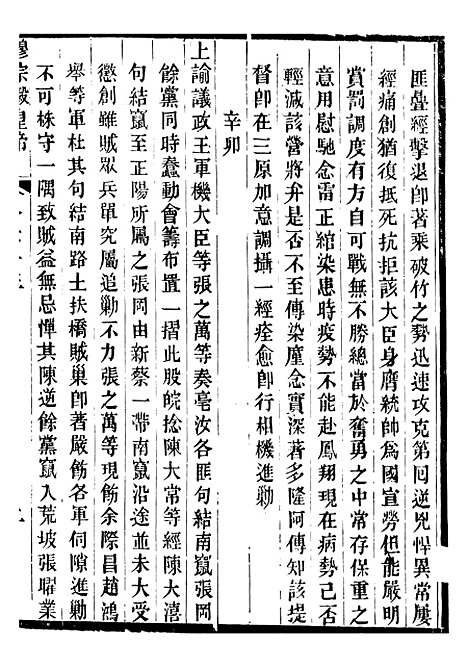 匪疊經擊退卽著乘破竹之勢迅速攻克第回逆兇悍異常屢
經痛創猶復抵死抗拒該大臣身膺統帥爲國宣勞但能嚴明
賞罰調度有方自可戰無不勝總當於奮勇之中常存保重之
意用慰馳念雷正綰染患時疫勢不能赴鳳翔現在病勢己否
輕減該營將弁是否不至傳染廑念實深著多隆阿傳知該提
督卽在三原加意調攝一經痊愈卽行相機進勦
辛卯
上諭議政王軍機大臣等張之萬等奏亳汝各匪句結南竄張岡
餘黨同時蠢動會籌布置一摺此股皖捻陳大常等經陳大濆
句結竄至正陽所屬之張岡由新蔡一帶南竄沿途並未大受
懲創雖賊眾兵單究屬追勦不力張之萬等現飭余際昌趙鴻
舉等軍杜其句結南路土扶橋賊巢卽著嚴飭各軍伺隙進勦
不可株守一隅致賊益無忌憚其陳逆餘黨竄入荒坡張曜業
穆宗毅皇帝